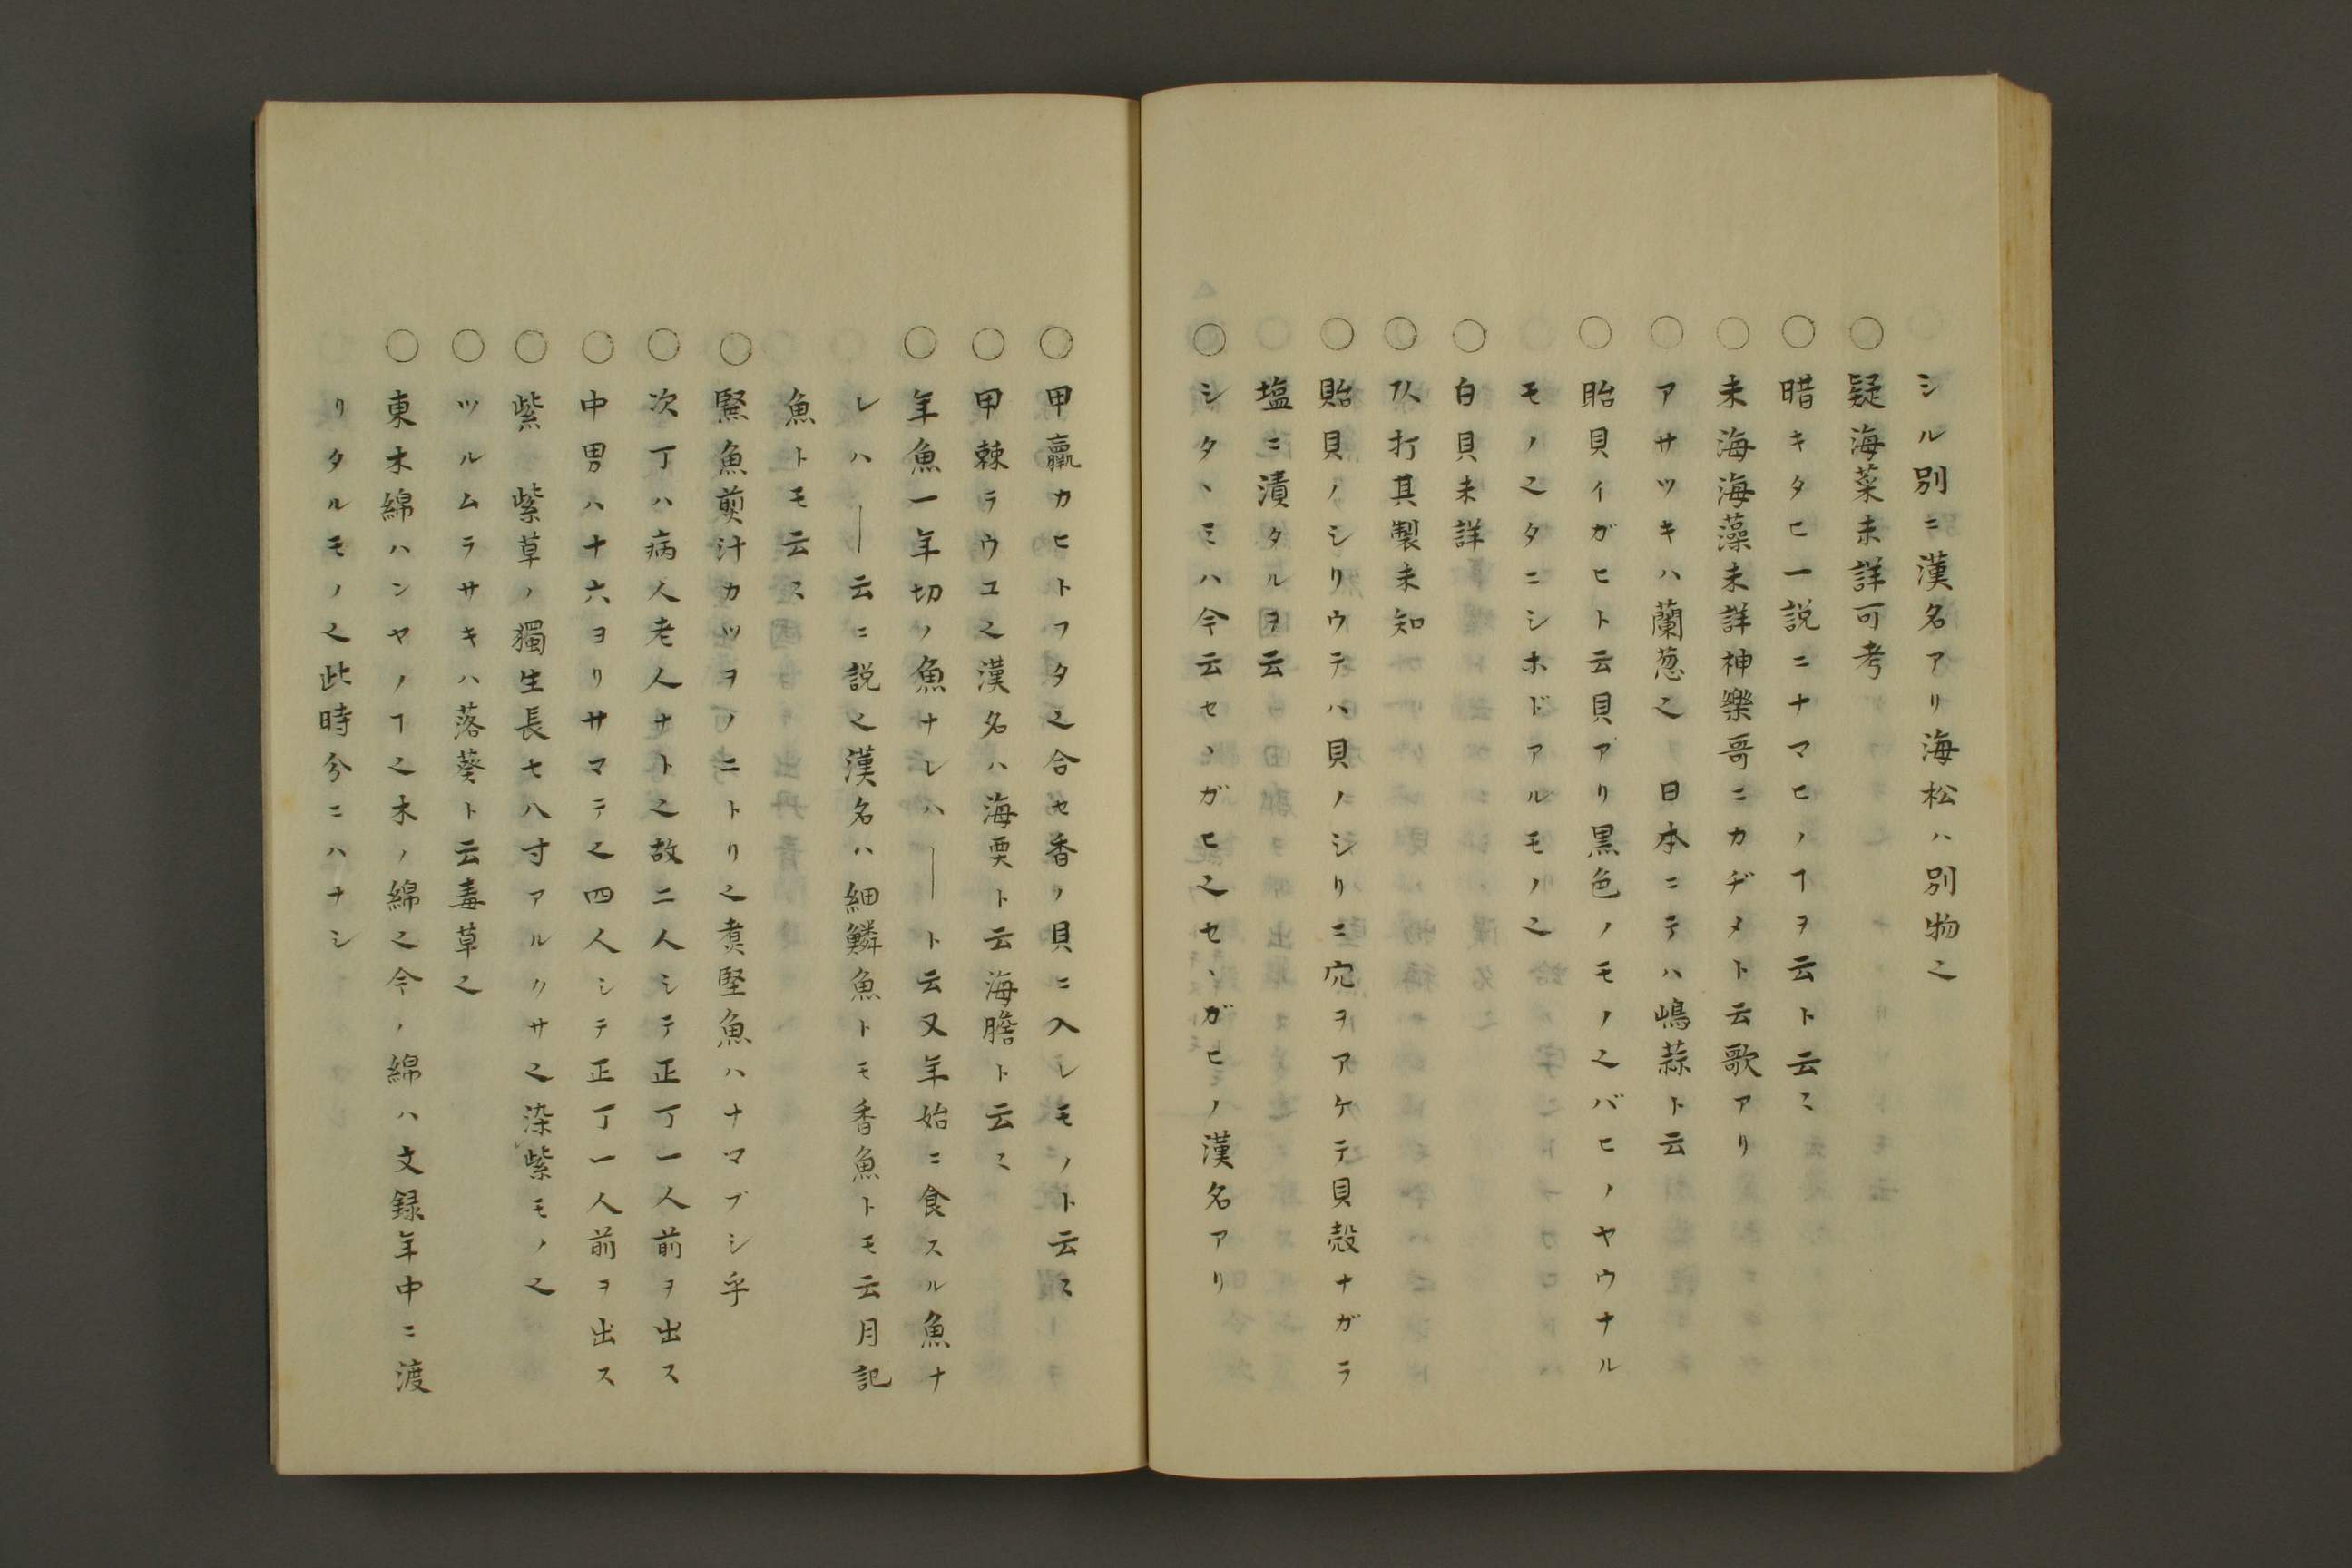 シル別ニ漢名アリ海松ハ別物之
○疑海菜未詳可考
○暗キタヒ一説ニナマヒノヿヲ云ト云ミ
○未海海藻未詳神樂哥ニカヂメト云歌アリ
○アサツキハ蘭葱之日本ニテハ嶋蒜ト云
○眙貝イガヒト云貝アリ黒色ノモノ之バヒノヤウナル
モノ之タニシホドアルモノ之
○白貝未詳
○打其製未知
○貽貝ノシリウテハ貝ノシリニ宂ヲアケテ貝殻ナガラ
塩ニ漬タルヲ云
○シタヽミハ今云セヽガヒ之セヽガヒノ漢名アリ
○甲蠃カヒトフタ之合セ香ノ貝ニ入レモノト云ミ
○甲棘ラウユ之漢名ハ海栗ト云海膽ト云ミ
○年魚一年切ノ魚ナレハ｜ト云又年始ニ食スル魚ナ
レハ｜云ニ説之漢名ハ細鱗魚トモ香魚トモ云月記
魚トモ云ミ
○緊魚煎汁カツヲノニトリ之煮堅魚ハナマブシ乎
○次丁ハ病人老人ナト之故二人シテ正丁一人前ヲ出ス
○中男ハ十六ヨリサマテ之四人シテ正丁一人前ヲ出ス
○紫　紫草ノ獨生長七八寸アルクサ之染紫モノ之
○ツルムラサキハ落葵ト云毒草之
○東木綿ハンヤノヿ之木ノ綿之今ノ綿ハ文録年中ニ渡
リタルモノ之此時分ニハナシ